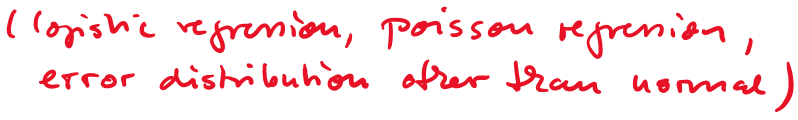 (logistic regression, poisson regression,
error distribution other than normal)